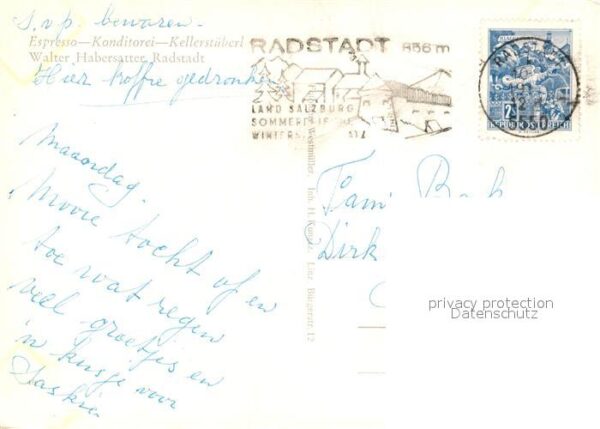 s.v.p. bewaren.
Espresso—Konditorei—Kellerstüberl
Walter Habersatter, Radstadt
Hier koffie gedronken
RADSTADT 856 m
LAND SALZBURG
SOMMER
WINTERS
RADSTADT
REPUBLIK ÖSTERREICH
Maandag.
Mooie tocht af en
toe wat regen
veel groetjes en
'n kusje voor
Saskia
Inh. H. Linz, Bürgerstr. 12
Fam. B
Dirk
privacy protection
Datenschutz